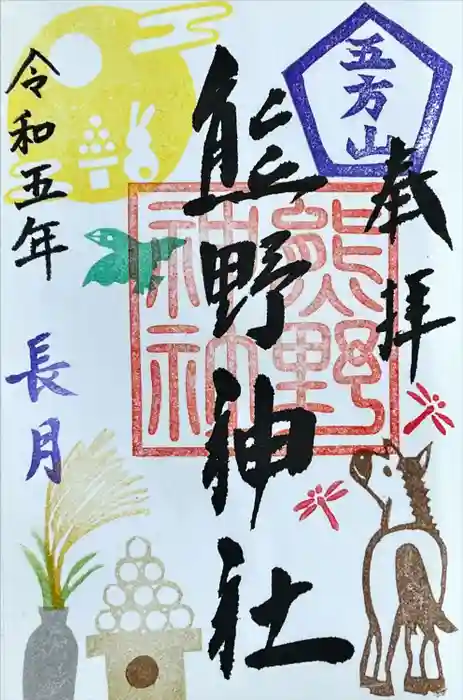 奉拝
五方山
熊野神社
熊野
神社
令和五年
長月